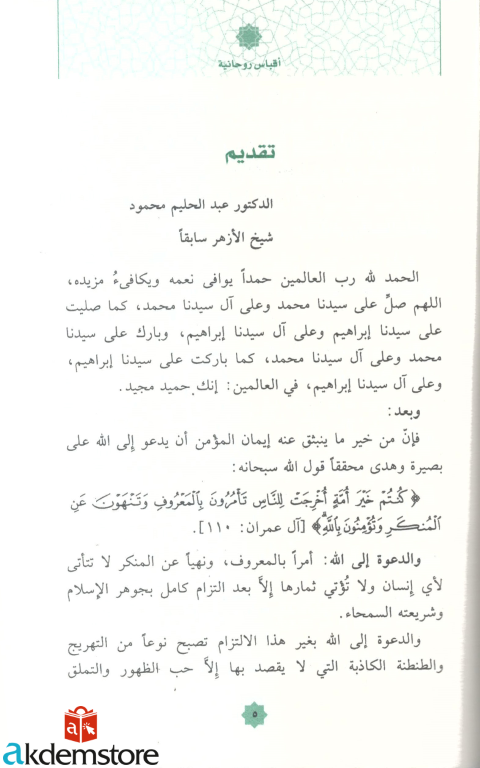 أقباس روحانية
تقديم
الدكتور عبد الحليم محمود
شيخ الأزهر سابقاً
الحمد لله رب العالمين حمداً يوافى نعمه ويكافىءُ مزيده،
اللهم صلِّ على سيدنا محمد وعلى آل سيدنا محمد، كما صليت
على سيدنا إبراهيم وعلى آل سيدنا إبراهيم، وبارك على سيدنا
محمد وعلى آل سيدنا محمد، كما باركت على سيدنا إبراهيم،
وعلى آل سيدنا إبراهيم، في العالمين: إنك حميد مجيد.
وبعد:
فإنّ من خير ما ينبثق عنه إيمان المؤمن أن يدعو إلى الله على
بصيرة وهدى محققاً قول الله سبحانه:
﴿كُنتُمْ خَيْرَ أُمَّةٍ أُخْرِجَتْ لِلنَّاسِ تَأْمُرُونَ بِالْمَعْرُوفِ وَتَنْهَوْنَ عَنِ
الْمُنكَرِ وَتُؤْمِنُونَ بِاللَّهِ﴾ [آل عمران: ١١٠].
والدعوة إلى الله: أمراً بالمعروف، ونهياً عن المنكر لا تتأتى
لأي إنسان ولا تُؤتي ثمارها إلاَّ بعد التزام كامل بجوهر الإسلام
وشريعته السمحاء.
والدعوة إلى الله بغير هذا الالتزام تصبح نوعاً من التهريج
والطنطنة الكاذبة التي لا يقصد بها إلاَّ حب الظهور والتملق
٥
a
akdemstore